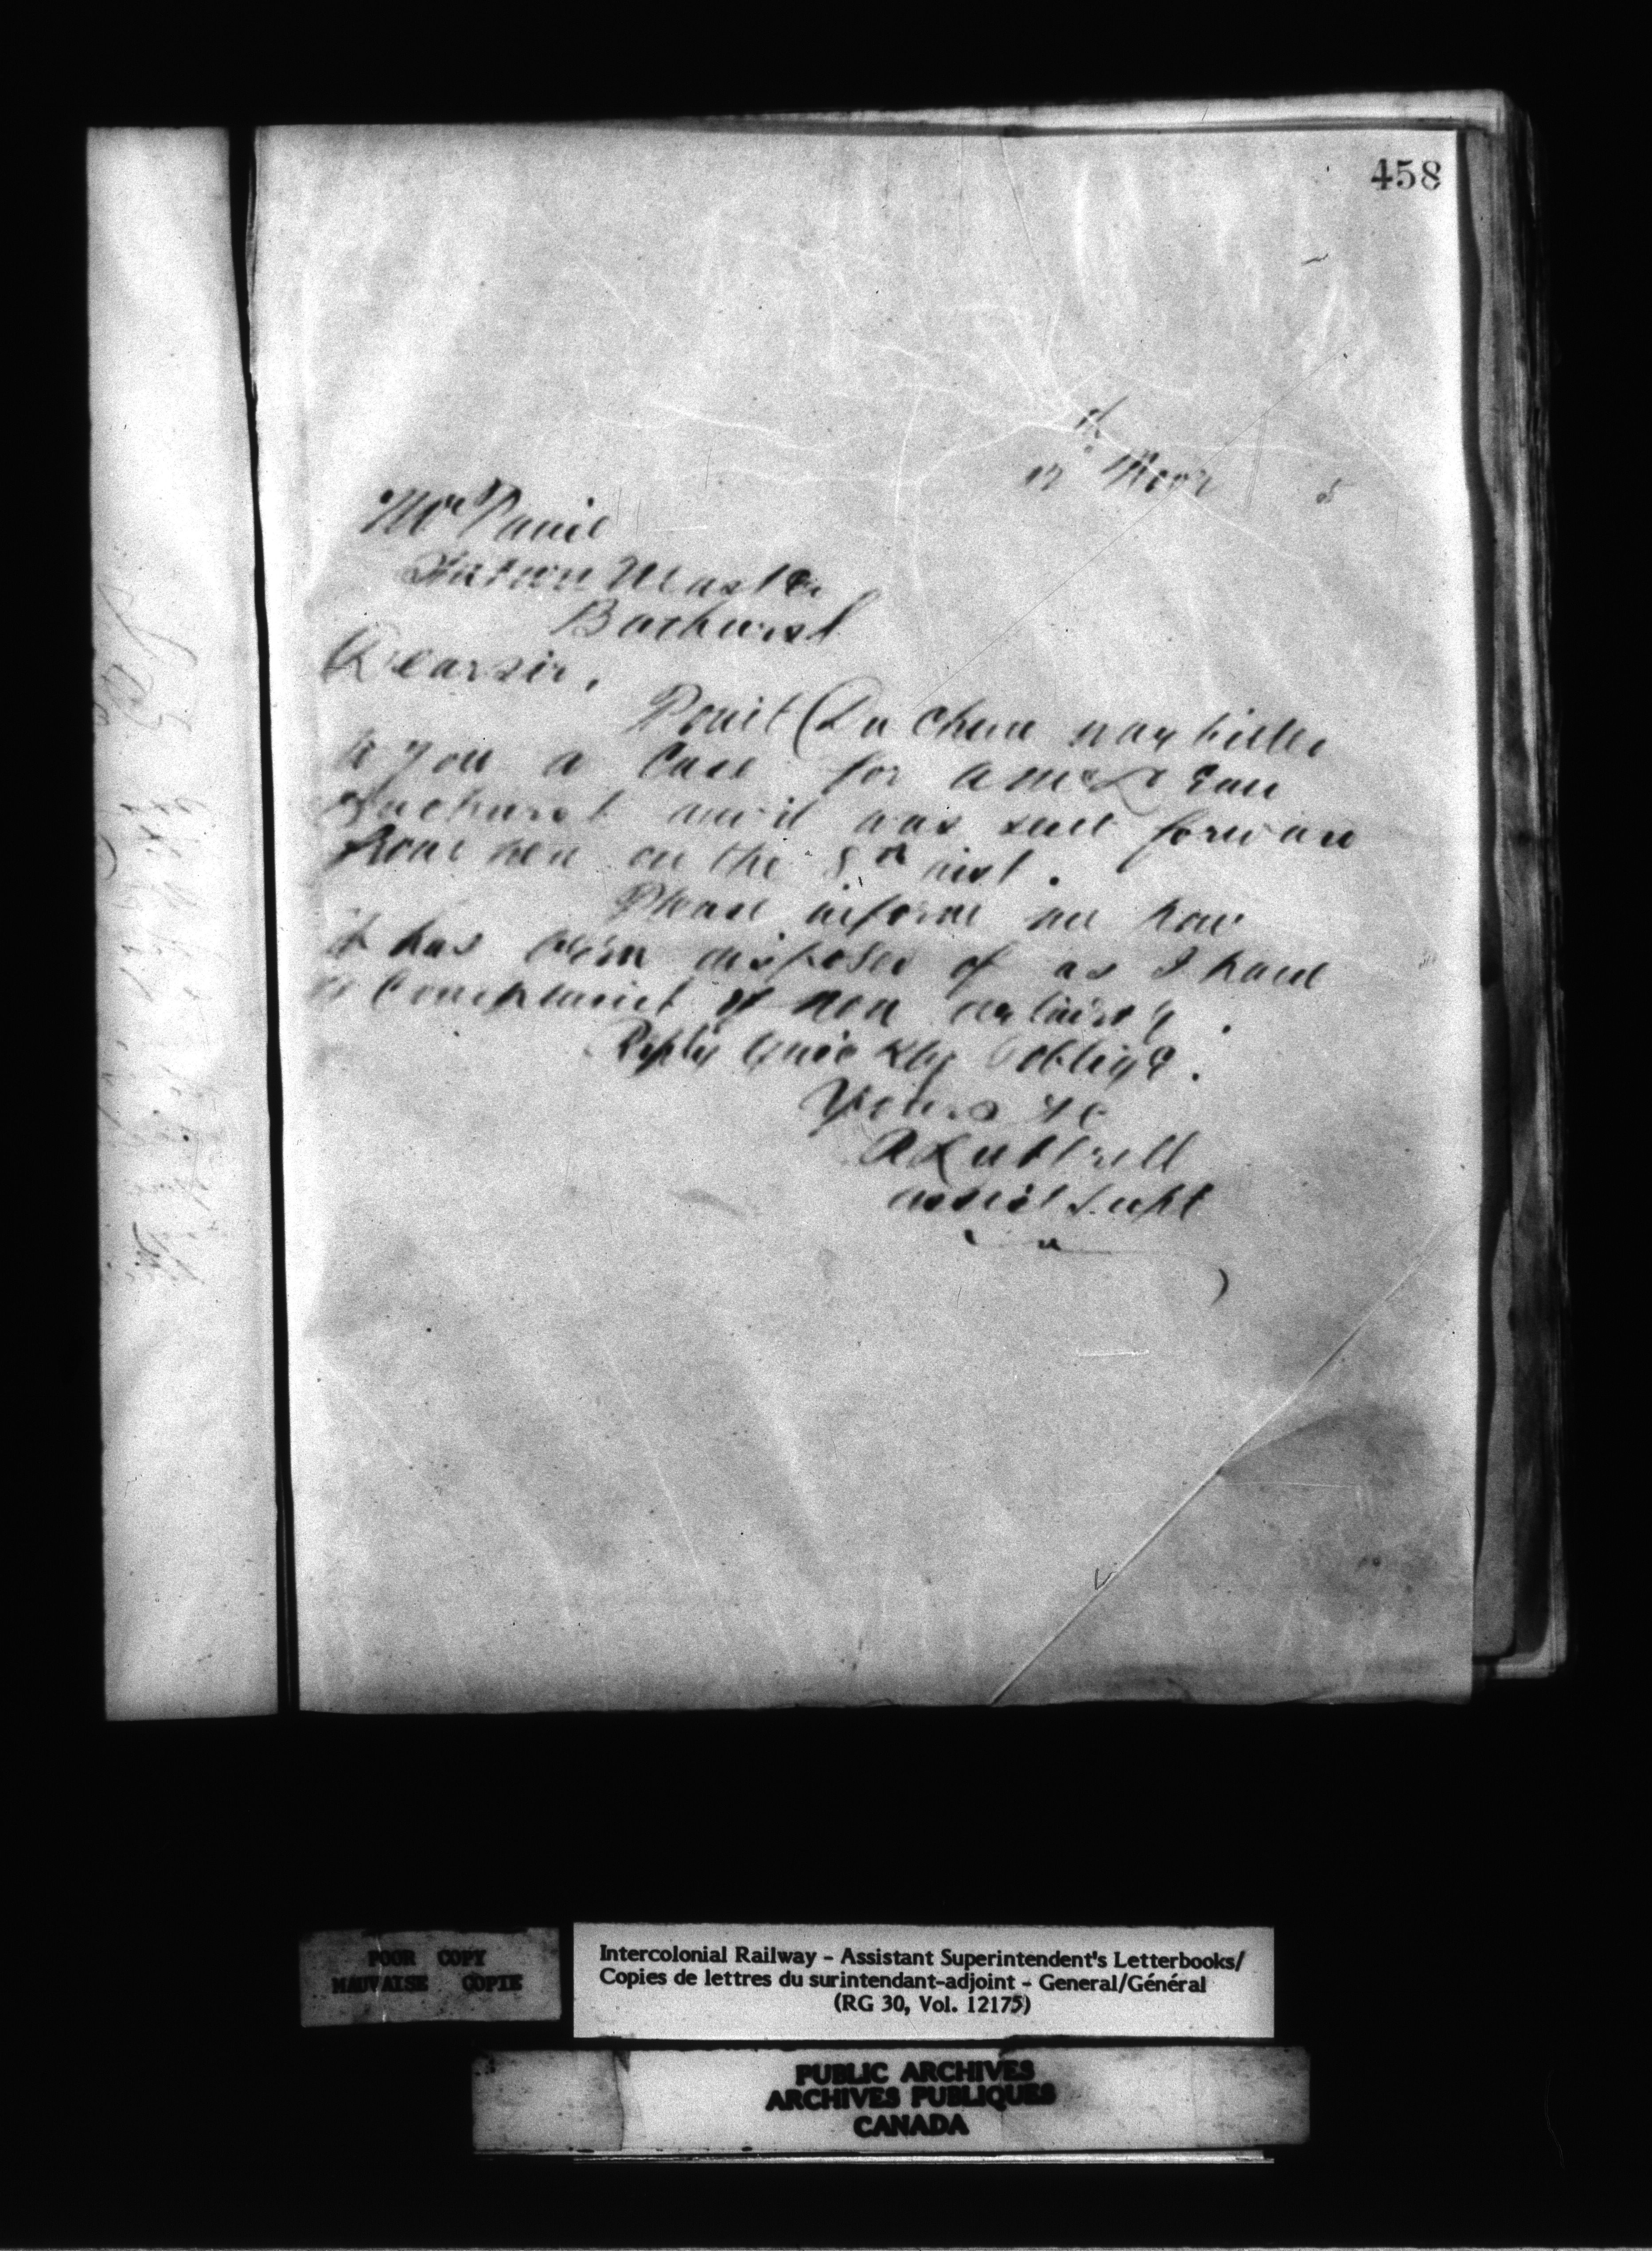 458
17th Novr 5
Mr
Station Master
Bathurst
Dear Sir,
Point Du Chene way billed
to you a Case for
Bathurst and it was sent forward
from here on the 8th inst.
Please inform me how
it has been disposed of as I have
a Complaint of non delivery.
Reply Quickly & oblige.
Yours &c
A Luttrell
Assist Supt
POOR COPY
MAUVAISE COPIE
Intercolonial Railway - Assistant Superintendent's Letterbooks/
Copies de lettres du surintendant-adjoint - General/Général
(RG 30, Vol. 12175)
PUBLIC ARCHIVES
ARCHIVES PUBLIQUES
CANADA